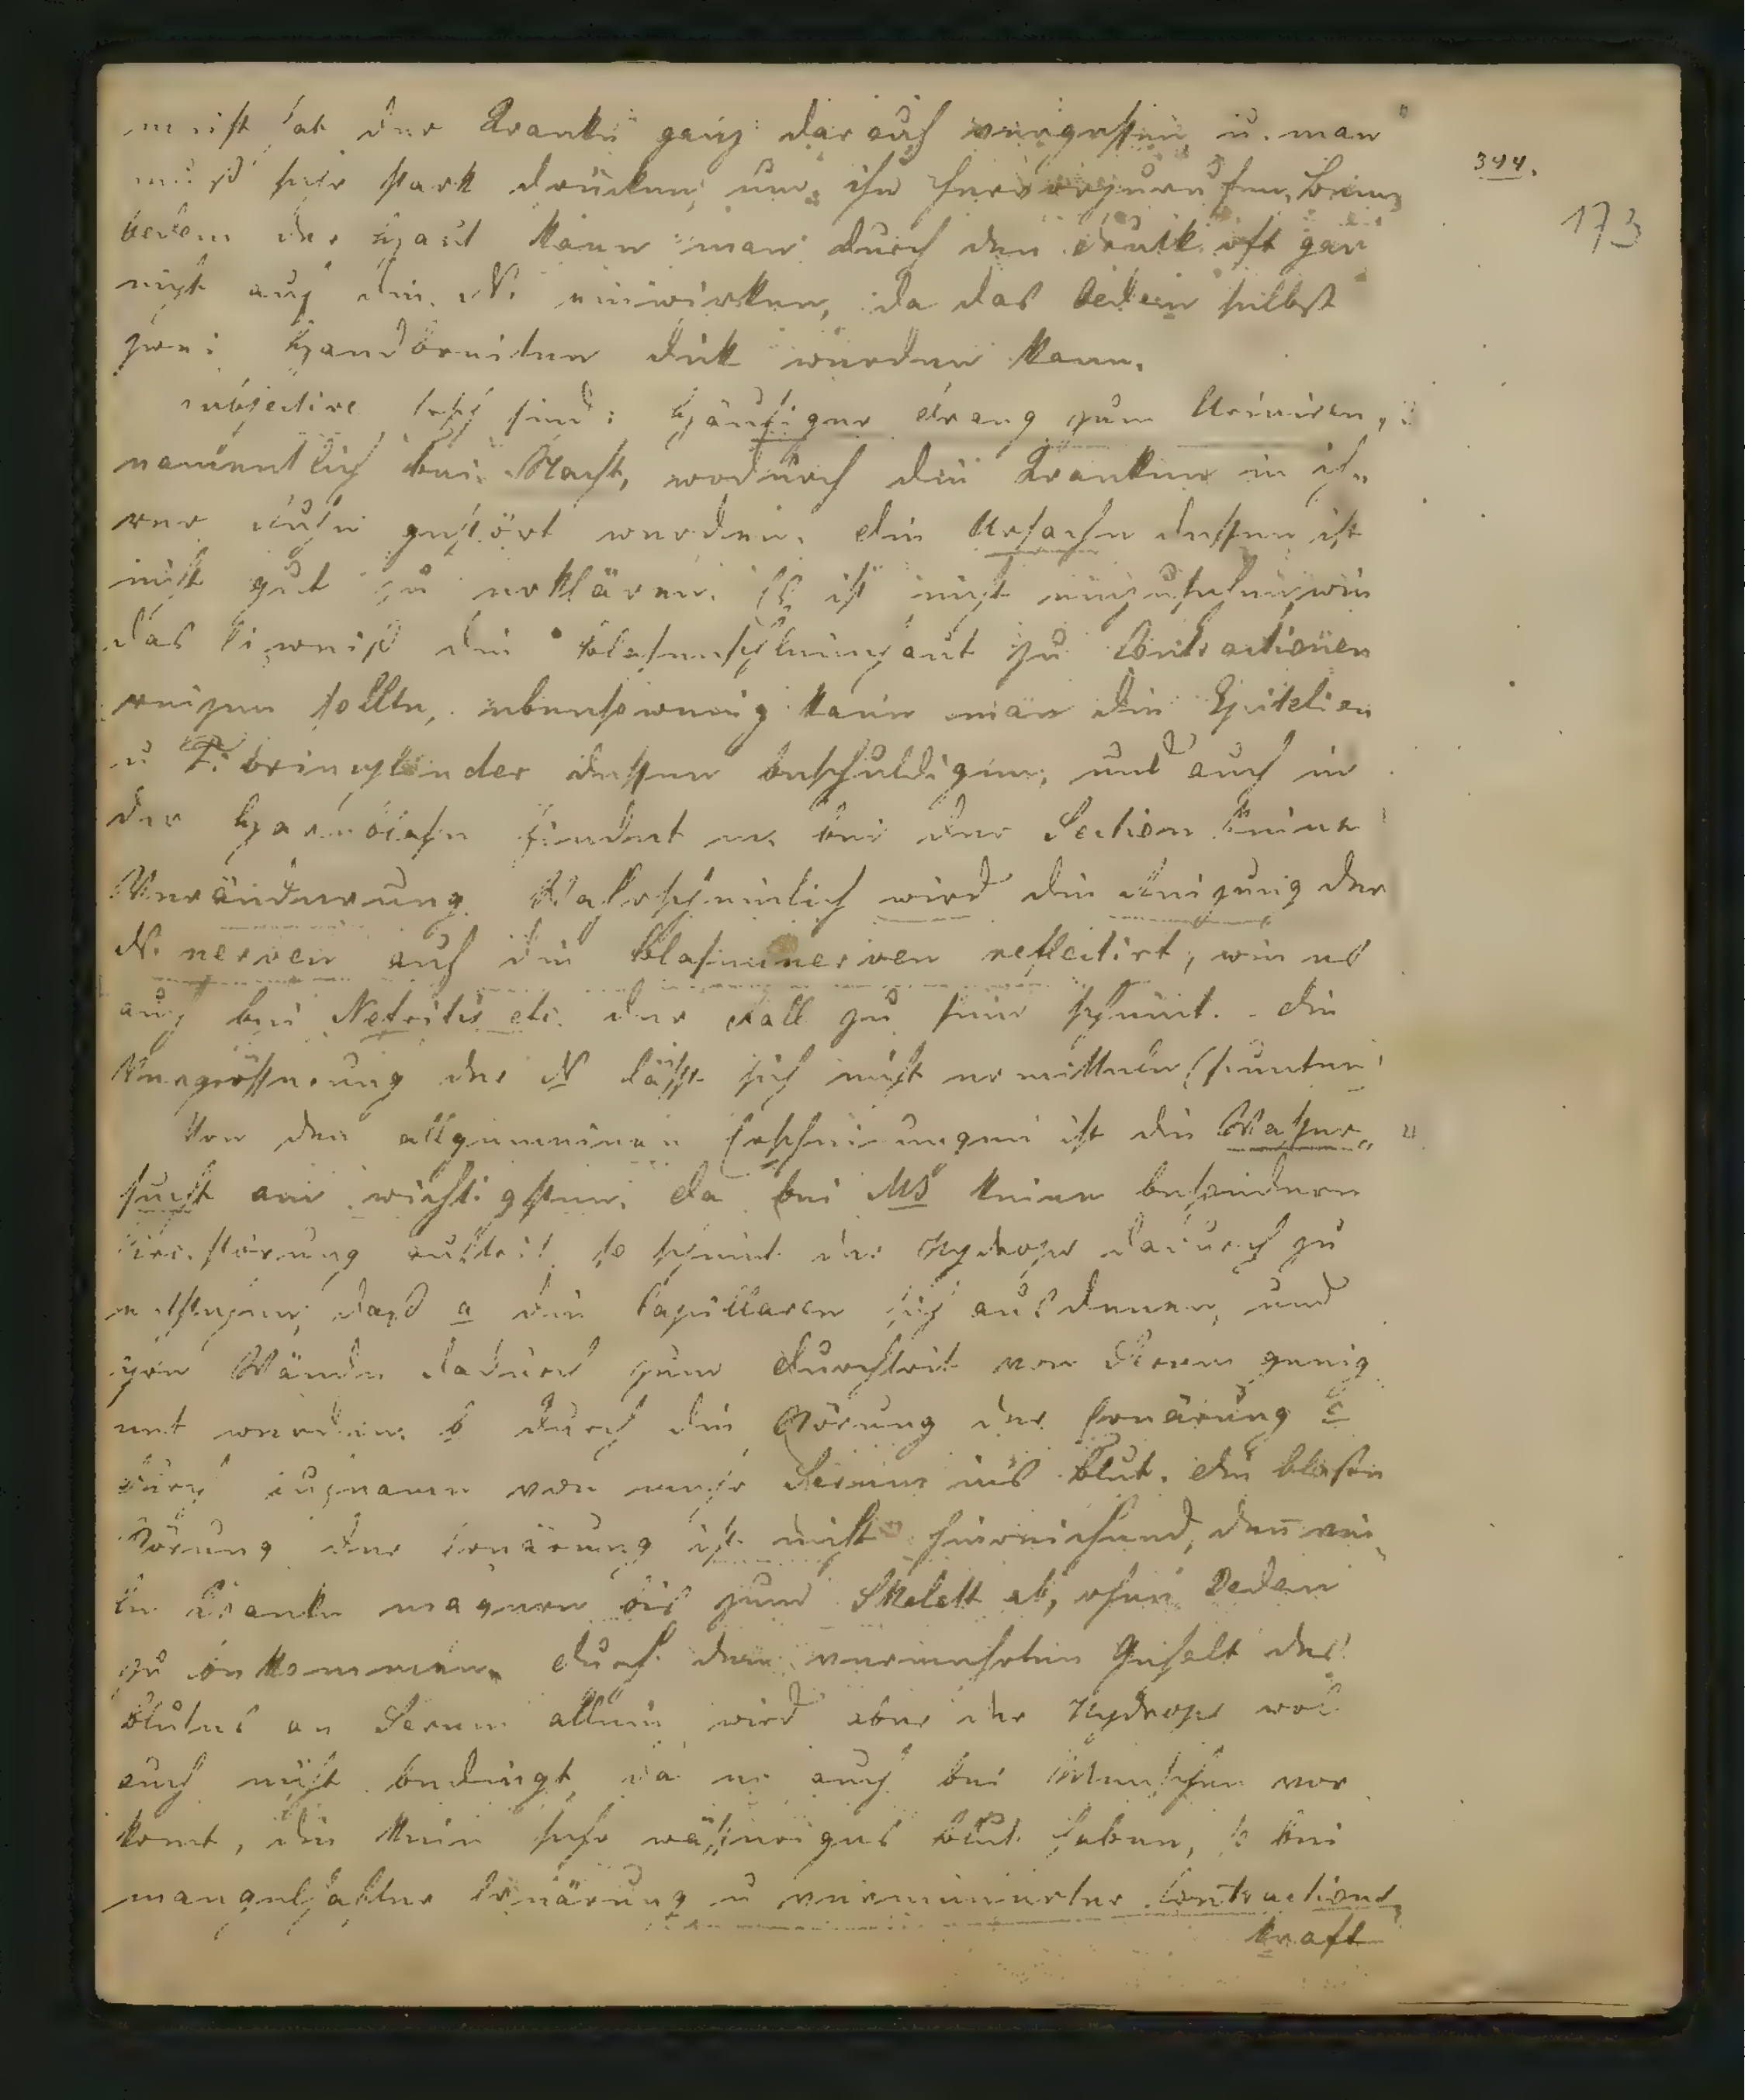 meist hat der Kranke ganz darauf vergessen, u. man
muß sehr stark drücken, um ihn hervorzurufen, beim
Oedem der Haut kann man durch den Druck oft gar
nicht auf die N. einwirken, da das Oedem selbst
zwei Handbreiten dick werden kann.
344.
173
subjective sind: Häufiger Drang zum Uriniren,
namentlich bei Nacht, wodurch die Kranken in ih-
rer Ruhe gestört werden. die Ursache dessen ist
nicht gut zu erklären. Es ist nicht einzusehen, wie
das Eiweiß die Blasenschleimhaut zu Contractionen
reizen sollte, ebensowenig kann man die Epitelien
u Fibrincylinder dessen beschuldigen, und auch in
der Harnblase findet m. bei der Section keine
Veränderung. Wahrscheinlich wird die Reizung der
N. nerven auf die Blasennerven reflectirt, wie es
auch bei Nefritis etc. der Fall zu sein scheint. die
Vergrösserung der N läßt sich nicht ermitteln
Von den allgemeinen Erscheinungen ist die Wasser-
sucht am wichtigsten. da bei MB keine besondere
Circ. störung auftritt, so scheint der Hydrops dadurch zu
entstehen, daß a die Capillaren sich ausdenen, und
ihre Wände dadurch zum Durchtrit von Serum geeig
net werden. b durch die Störung der Ernärung c
durch von mehr Serum ins Blut. die blosse
Störung der Ernärung ist nicht hinreichend, den vie-
le Kranke magern bis zum Skelett ab, ohne Oedem
zu bekommen. durch den vermehrten Gehalt des
Blutes an Serum allein wird aber der Hydrops wol
auch nicht bedingt, da er auch bei Menschen vor
komt, die kein sehr wässeriges Blut haben, so bei
mangelhafter Ernärung u verminderter Contractions-
kraft